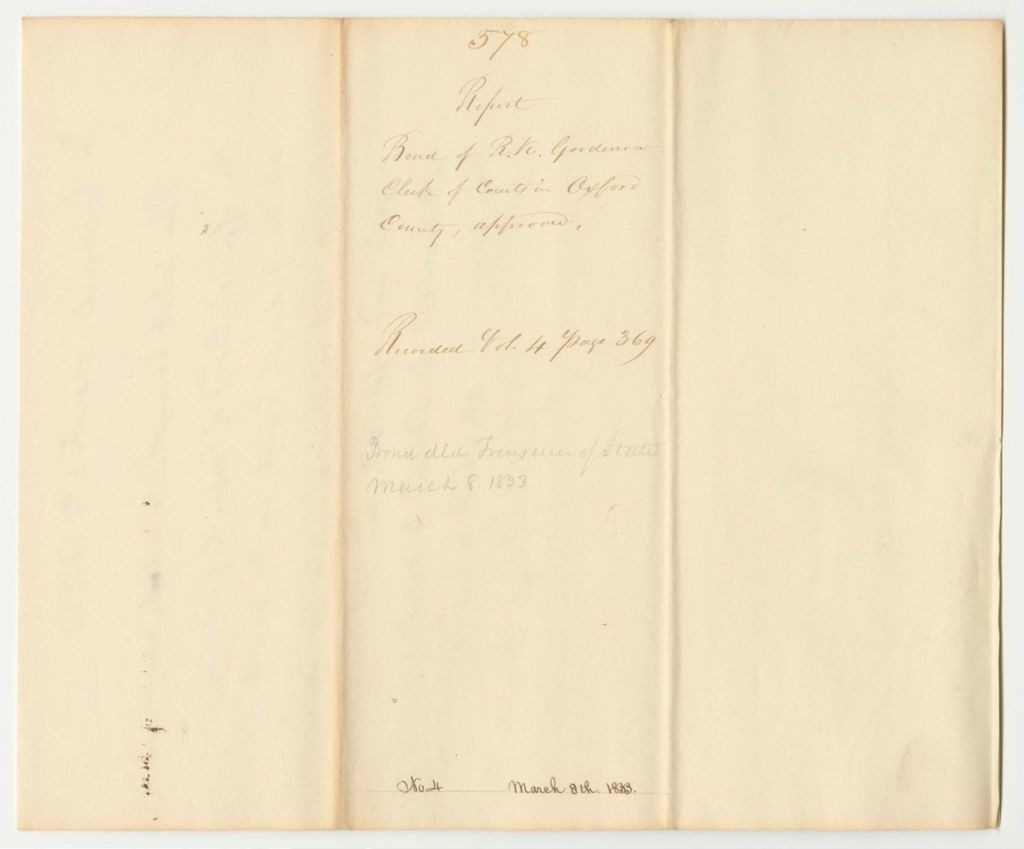 578
Report
Bond of R.K. Goodenow
Clerk of Courts in Oxford
County, approved.
Recorded Vol. 4 Page 369
Bond dld Treasurer of State
March 8. 1833
No. 4 March 8th. 1833.